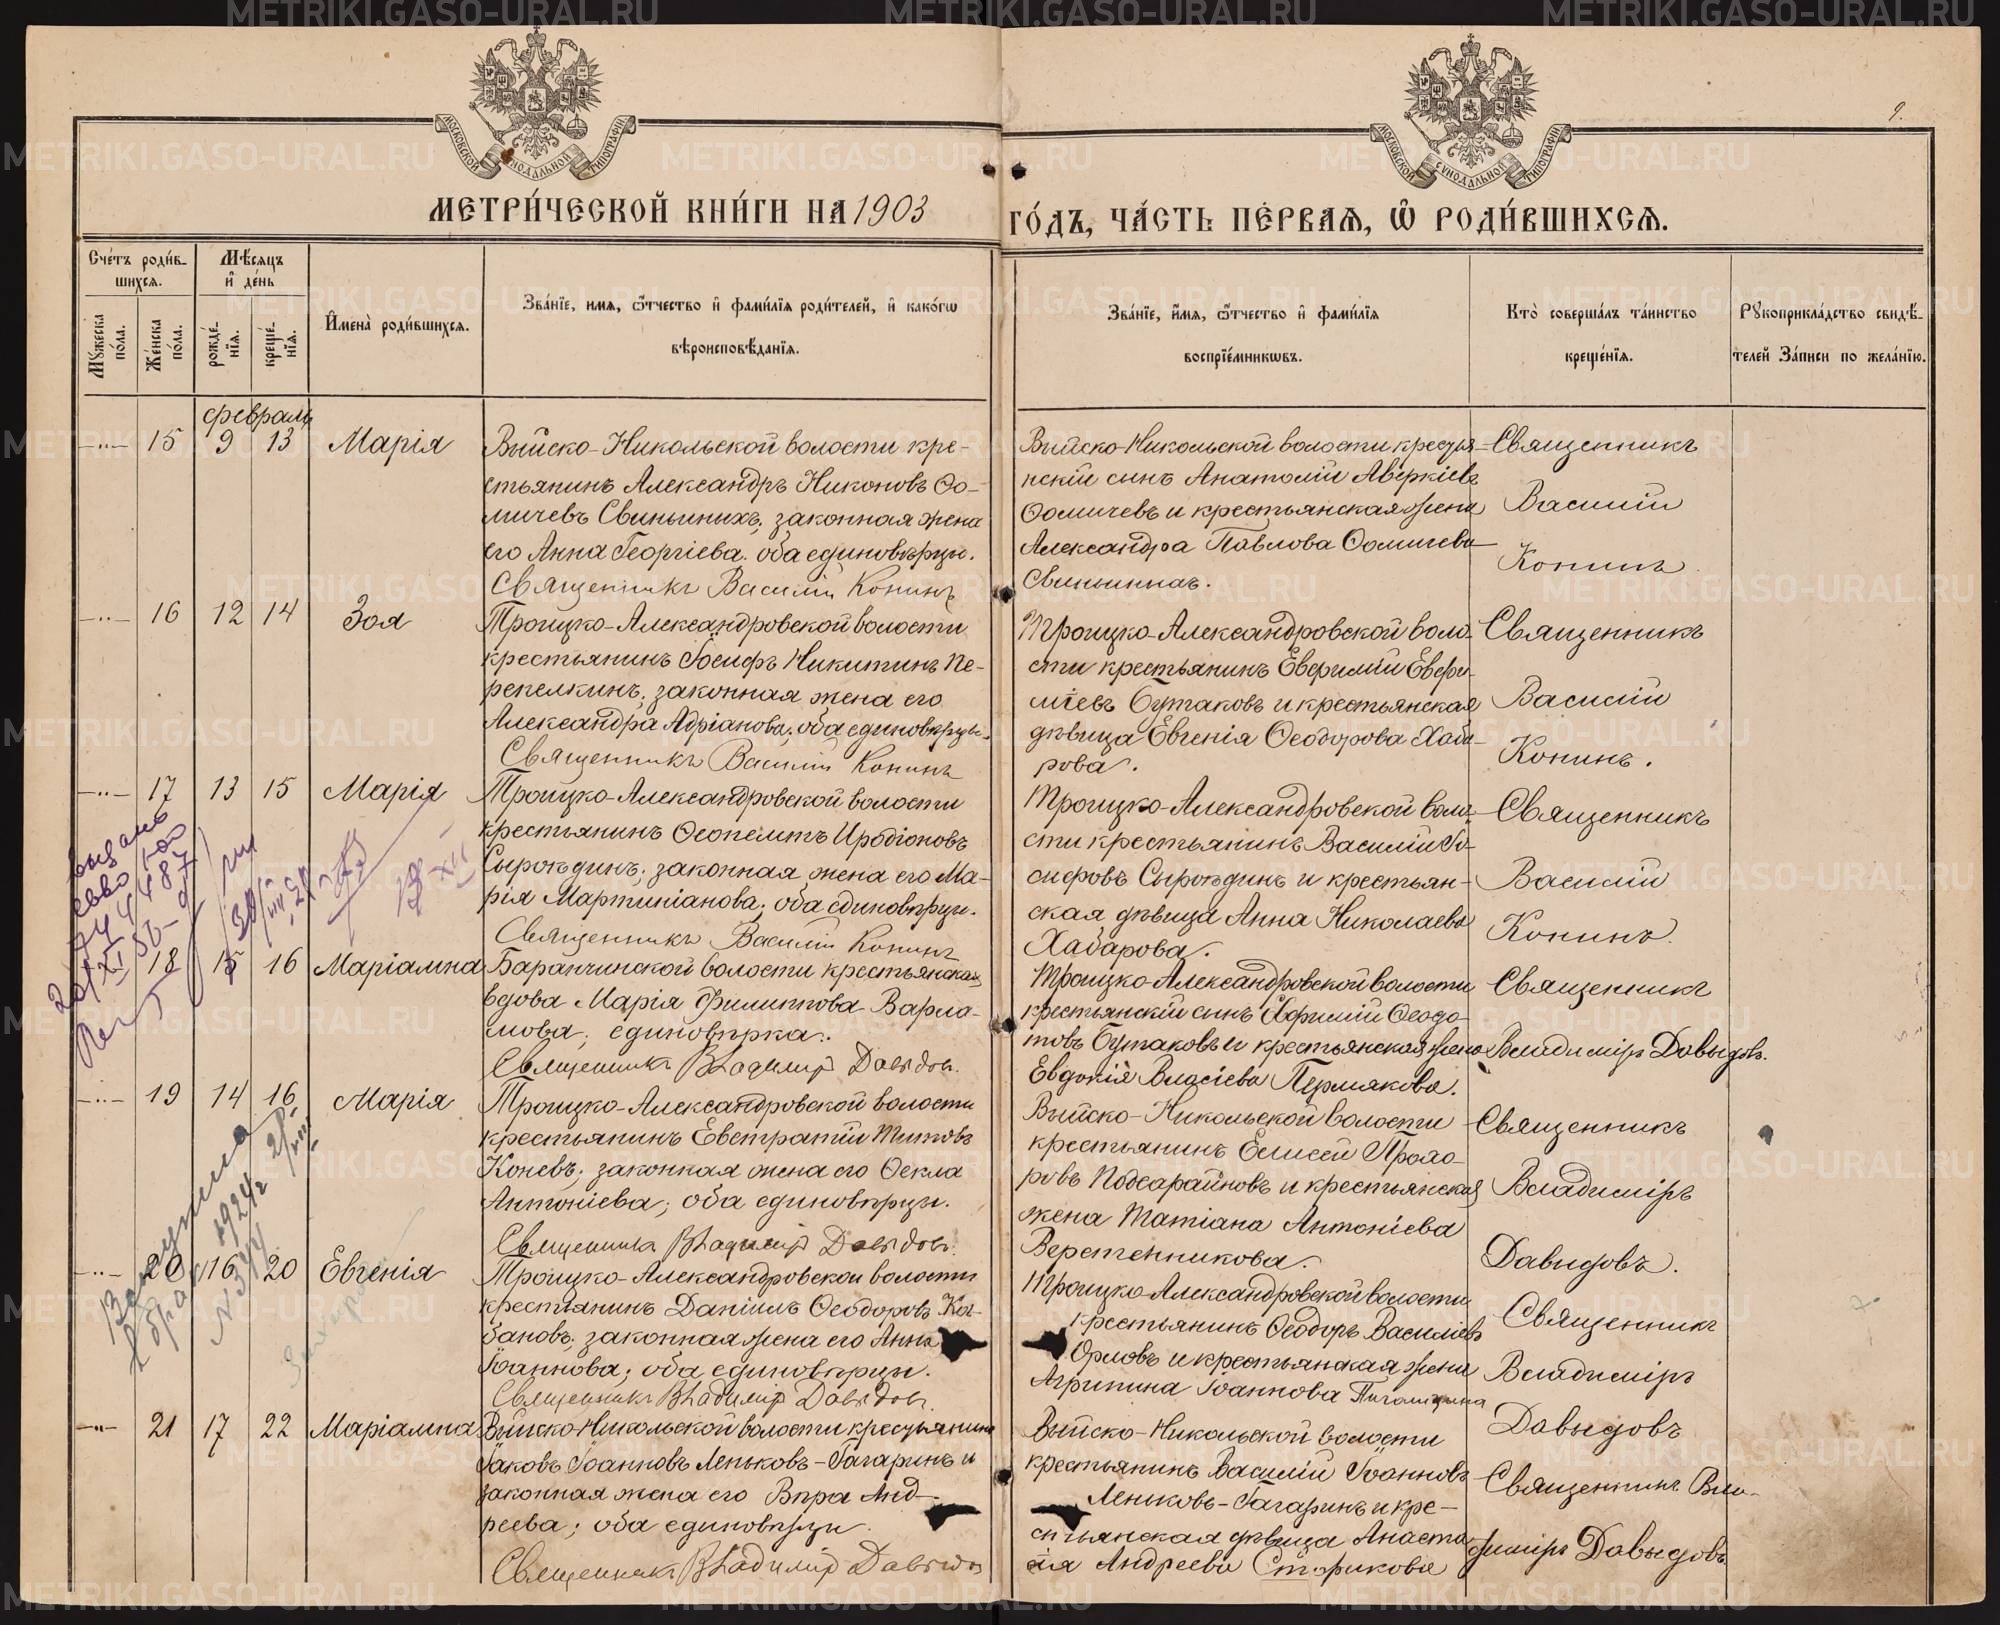 МЕТРИ́ЧЕСКОЙ КНИ́ГИ НА 1903
ГО́ДЪ, ЧА́СТЬ ПЕ́РВАЯ, Ѡ҆ РОДИ́ВШИХСЯ.
9.
Сче́тъ роди́в-
шихся.
Мѣ́сяцъ
и҆ де́нь
Мꙋжеска по́ла.
Же́нска по́ла.
рожде́-
нїя.
креще́-
нїя.
И҆мена̀ роди́вшихся.
Зва́нїе, имя, ѿчество и҆ фами́лїя роди́телей, и҆ како́гѡ
вѣроисповѣ́данїя.
Зва́нїе, и҆мя, ѿчество и҆ фами́лїя
воспрїе́мникѡвъ.
Кто̀ соверша́лъ та́инство
креще́нїя.
Рꙋкоприкла́дство свидѣ́-
телей За́писи по жела́нїю.
февраль
—"— 15 9 13 Марія
Выйско-Никольской волости кре-
стьянинъ Александръ Никоновъ Ѳо-
мичевъ Свиньиныхъ, законная жена
его Анна Георгіева. оба единовѣрцы.
Священникъ Василій Конинъ
Выйско-Никольской волости крестья-
нскій сынъ Анатолій Аверкіевъ
Ѳомичевъ и крестьянская жена
Александра Павлова Ѳомичева
Свиньиныхъ.
Священникъ
Василій
Конинъ
—"— 16 12 14 Зоя
Троицко-Александровской волости
крестьянинъ Іосифъ Никитинъ Пе-
репелкинъ, законная жена его
Александра Адріанова, оба единовѣрцы.
Священникъ Василій Конинъ
Троицко-Александровской воло-
сти крестьянинъ Евфимій Евфи-
міевъ Бутаковъ и крестьянская
дѣвица Евгенія Ѳеодорова Хаба-
рова.
Священникъ
Василій
Конинъ.
—"— 17 13 15 Марія
Троицко-Александровской волости
крестьянинъ Ѳеопемптъ Иродіоновъ
Сыроѣдинъ, законная жена его Ма-
рія Мартиніанова, оба единовѣрцы.
Священникъ Василій Конинъ
Троицко-Александровской воло-
сти крестьянинъ Василій Іо-
сифовъ Сыроѣдинъ и крестьян-
ская дѣвица Анна Николаева
Хабарова.
Священникъ
Василій
Конинъ.
—"— 18 15 16 Маріамна
Баранчинской волости крестьянская
вдова Марія Филиппова Варла-
мова, единовѣрка.
Священникъ Владимір Давыдовъ.
Троицко-Александровской волости
крестьянскій сынъ Евфимій Ѳеодо-
товъ Бутаковъ и крестьянская жена
Евдокія Власіева Пермякова.
Священникъ
Владиміръ Давыдовъ.
—"— 19 14 16 Марія
Троицко-Александровской волости
крестьянинъ Евстратій Титовъ
Коневъ, законная жена его Ѳекла
Антоніева, оба единовѣрцы.
Священникъ Владимір Давыдовъ.
Выйско-Никольской волости
крестьянинъ Елисей Прохо-
ровъ Подсарайновъ и крестьянская
жена Татіана Антоніева
Веретенникова.
Священникъ
Владиміръ
Давыдовъ.
—"— 20 16 20 Евгенія
Троицко-Александровской волости
крестьянинъ Даніилъ Ѳеодоровъ
законная жена его Анна
Іоаннова, оба единовѣрцы.
Священникъ Владимір Давыдовъ.
Троицко-Александровской волости
крестьянинъ Ѳеодоръ Василіевъ
Орловъ и крестьянская жена
Агрипина Іоаннова
Священникъ
Владиміръ
Давыдовъ
—"— 21 17 22 Маріамна
Выйско-Никольской волости крестьянинъ
Іаковъ Іоанновъ Леньковъ-Гагаринъ и
законная жена его Вѣра Анд-
реева, оба единовѣрцы.
Священникъ Владимір Давыдовъ
Выйско-Никольской волости
крестьянинъ Василій Іоанновъ
Леньковъ-Гагаринъ и кре-
стьянская дѣвица Анаста-
сія Андреева Старикова
Священникъ Вла-
диміръ Давыдовъ
METRIKI.GASO-URAL.RU